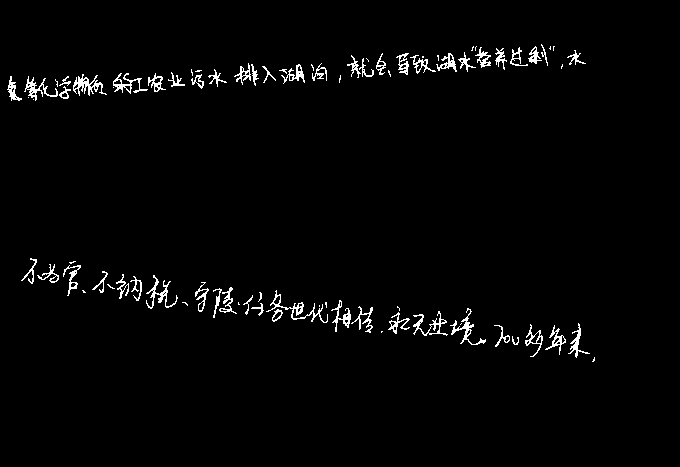 氮等化学物质的工农业污水排入湖泊，就会导致湖水“营养过剩”，水
不为官、不纳税、守陵任务世代相传，永无止境。700多年来，